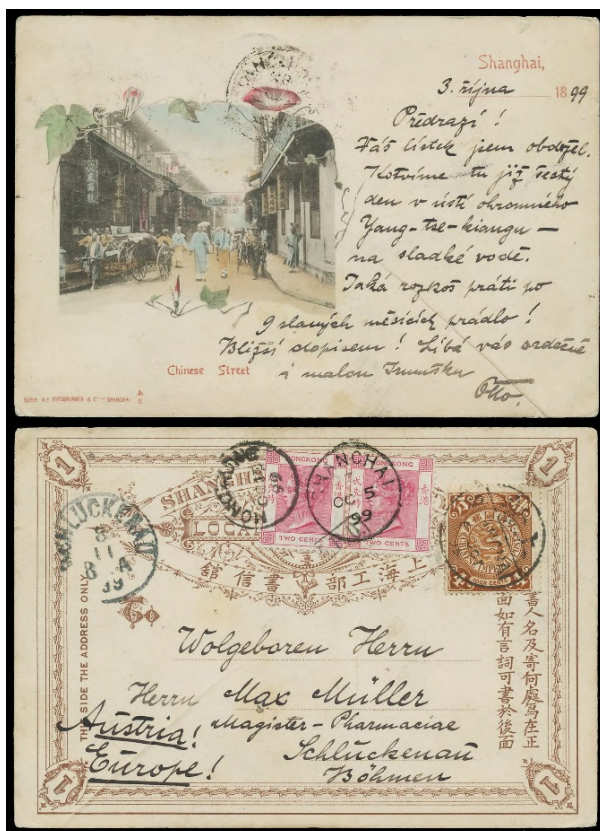 Shanghai,
3. října 1899
Předrazí!
Váš lístek jsem obdržel.
Kotvíme tu již šestý
den v ústí ohromného
Yang-tse-kiangu –
na sladké vodě.
Jaká rozkoš práti po
9 slaných měsících prádlo!
Bližší dopisem! Líbá vás srdečně
i malou
Otto.
Chinese Street
SHANGHAI
1
1
HONGKONG
HONGKONG
TWO CENTS
TWO CENTS
HONGKONG
SHANGHAI
OC 5
99
SCHLUCKENAU
8
11
99
LOCAL
上海工部書信館
THIS SIDE THE ADDRESS ONLY
書人名及寄何處寫在正
面如有言詞可書於後面
Wolgeboren Herrn
Herrn Max Müller
Magister-Pharmaciae
Schluckenau
Böhmen
Austria!
Europe!
1
1